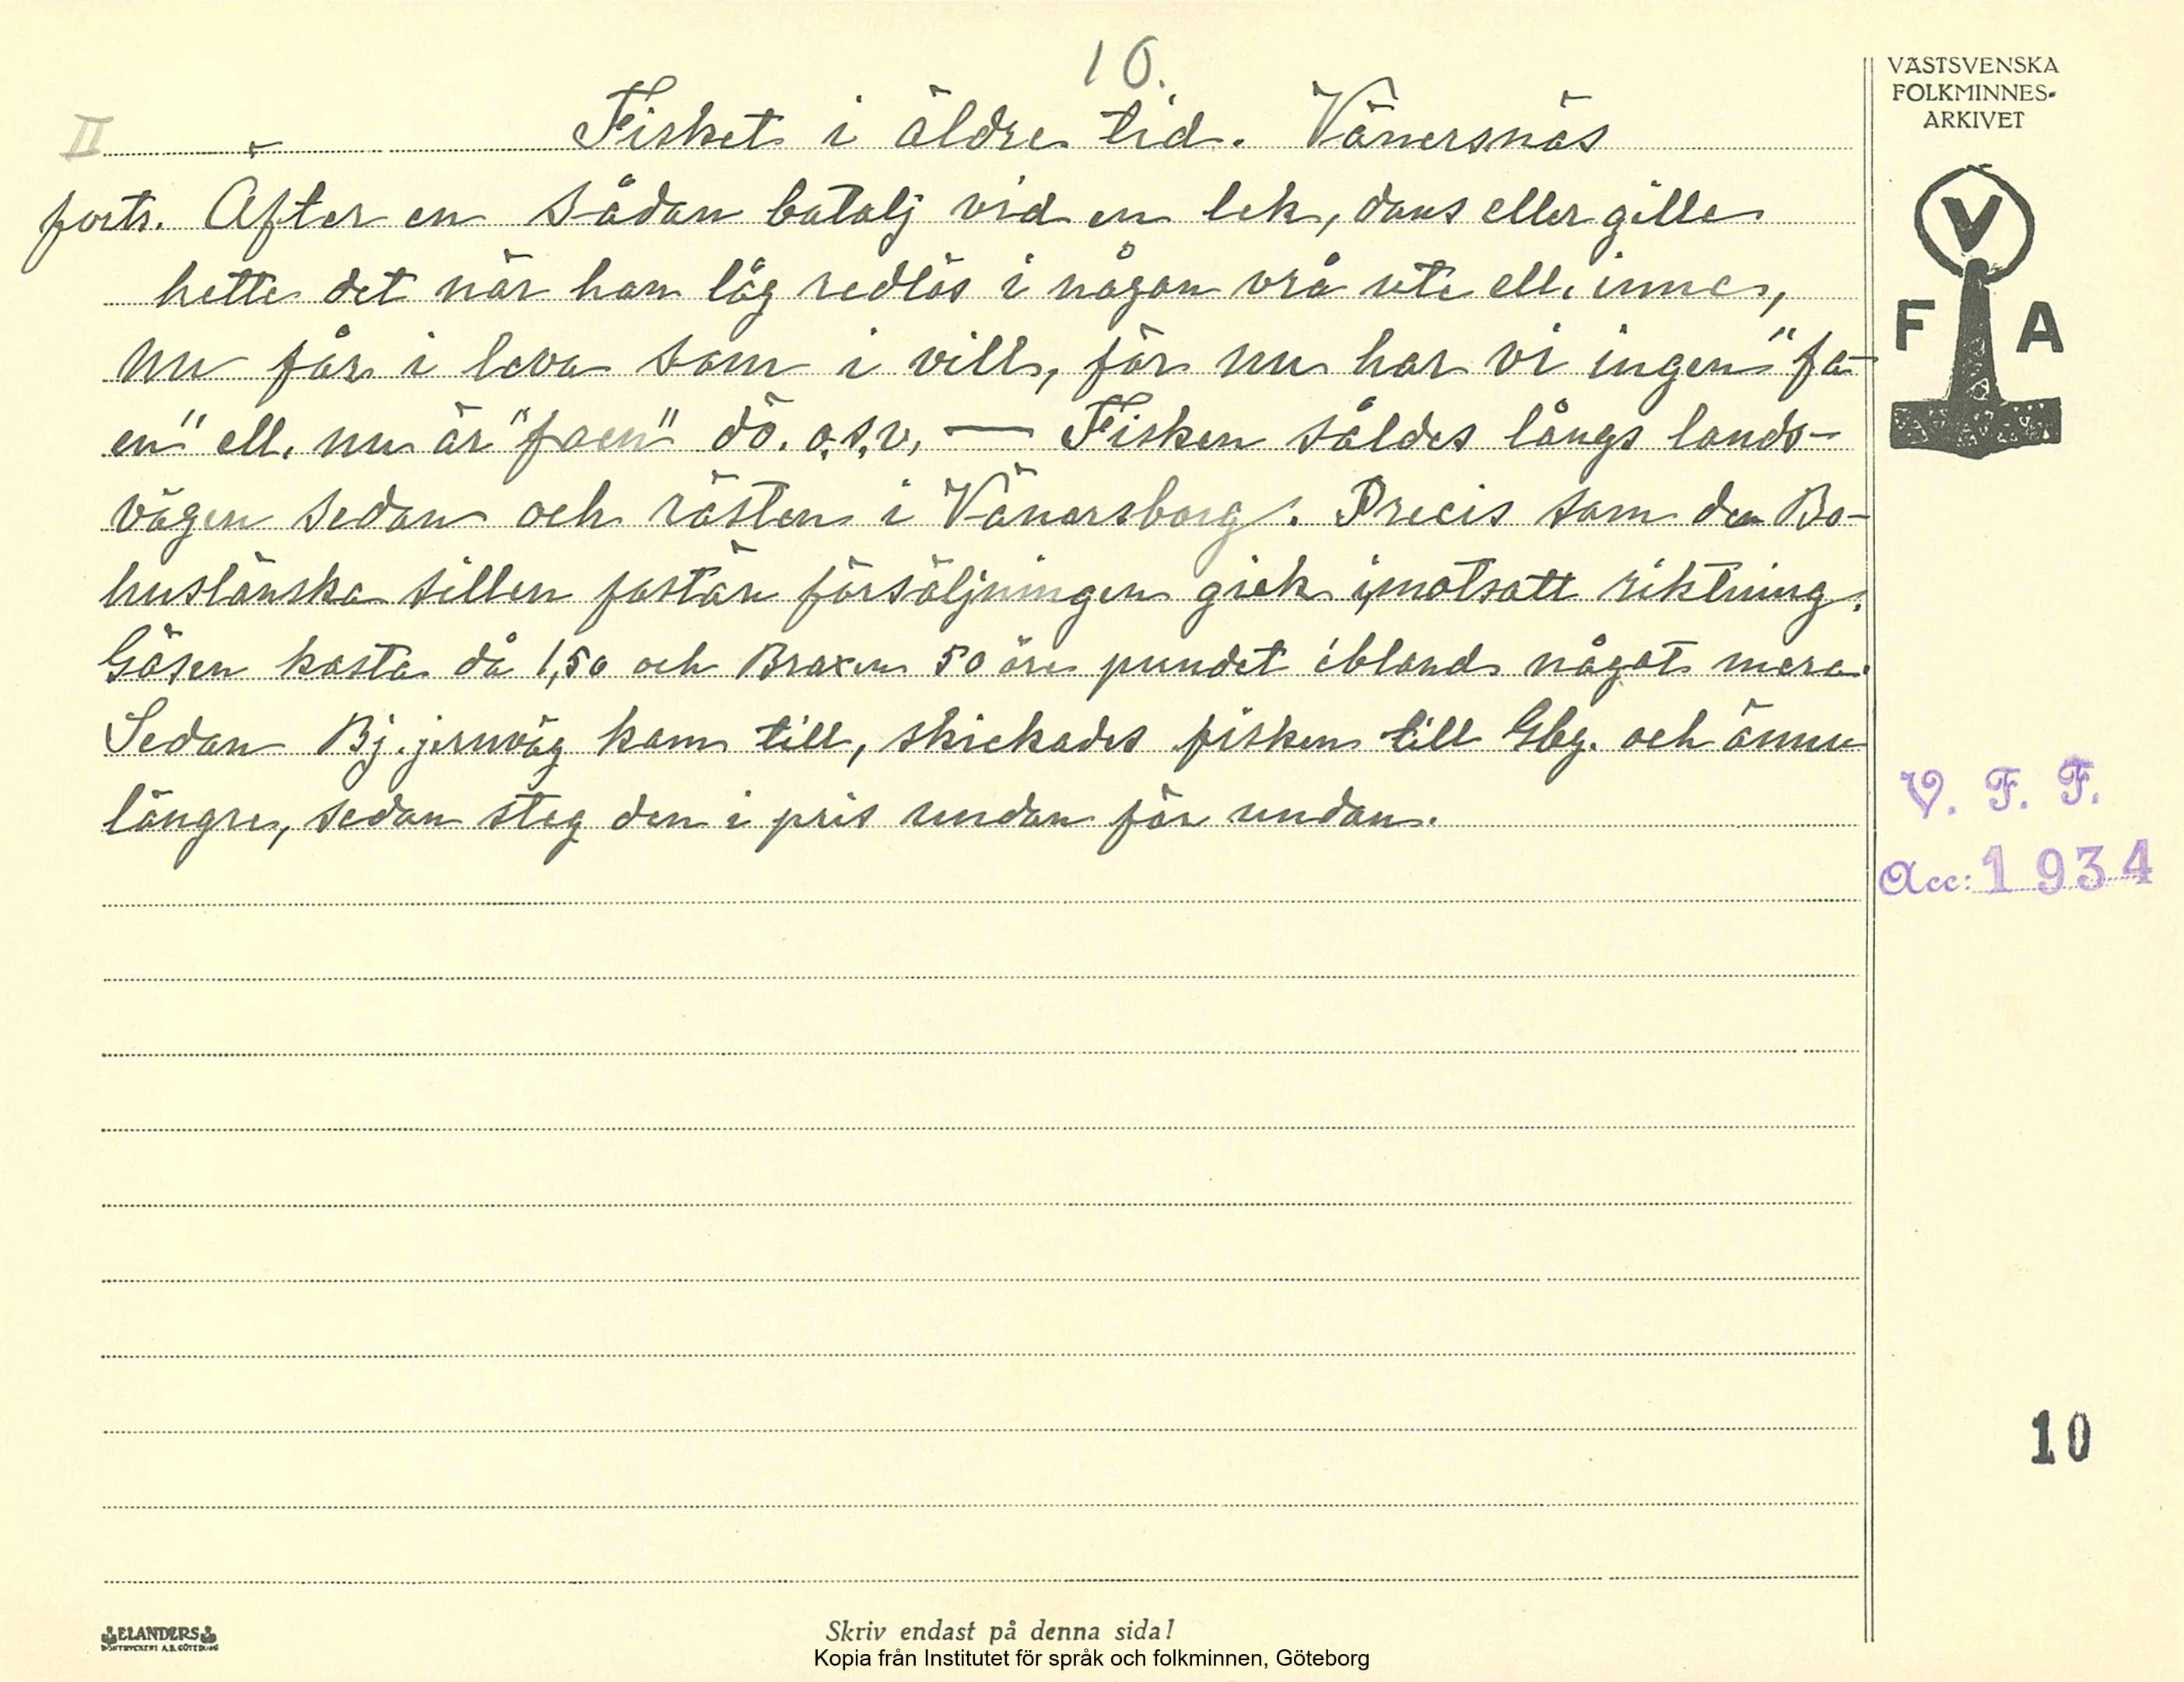 10.
II Fisket i äldre tid. Vänersnäs
forts. After en sådan batalj vid en lek, dans eller gille
hette det när han låg redlös i någon vrå ute ell. inne,
nu får i leva som i vill, för nu har vi ingen "fa-
en" ell. nu är "faen" dö. o.s.v. — Fisken såldes längs lands-
vägen sedan och rästen i Vänersborg. Precis som den Bo-
huslänska sillen fastän försäljningen gick i motsatt riktning.
Gösen kosta då 1,50 och Braxen 50 öre pundet ibland något mera.
Sedan Bj. jernväg kom till, skickades fisken till Gbg. och ännu
längre, sedan steg den i pris undan för undan.
VÄSTSVENSKA
FOLKMINNES-
ARKIVET
V
F A
V. F. F.
Acc: 1934
10
ELANDERS
BOKTRYCKERI A.B. GÖTEBORG
Skriv endast på denna sida!
Kopia från Institutet för språk och folkminnen, Göteborg